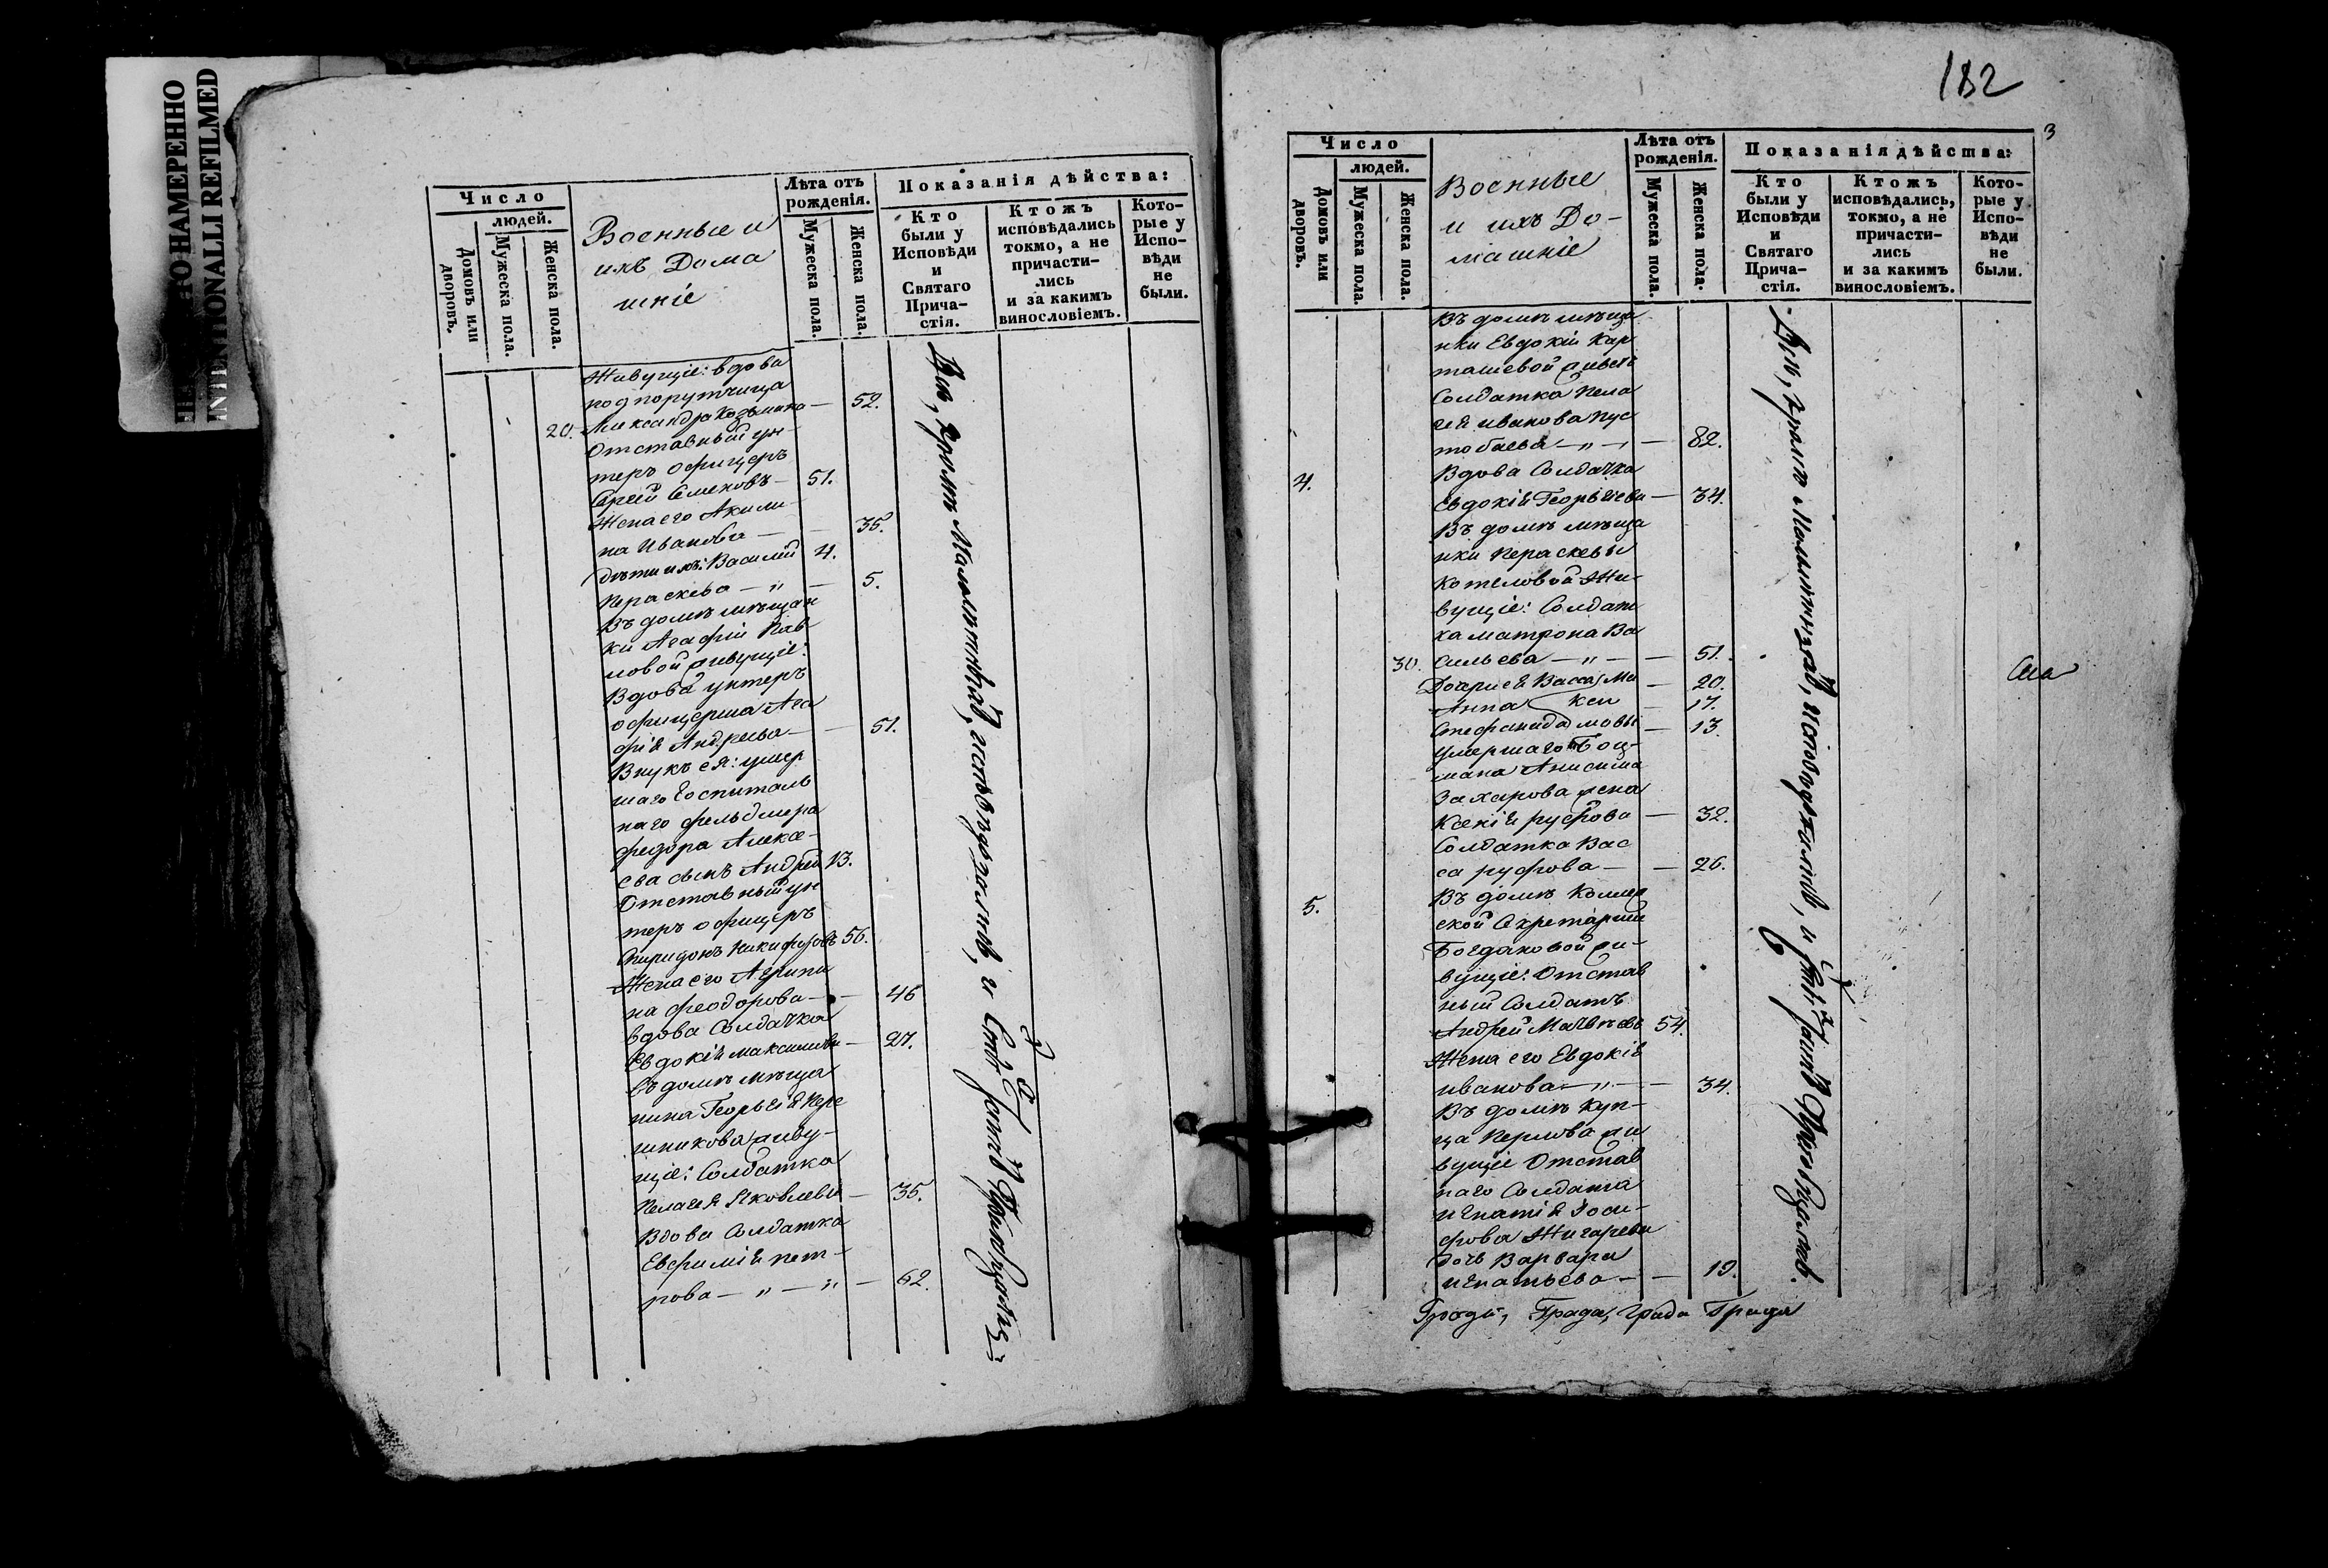 НАМЕРЕННО
INTENTIONALLI REFILMED
Число
людей.
Домовъ или дворовъ.
Мужеска пола.
Женска пола.
Военные и
ихъ Дома
шніе
Лѣта отъ
рожденія.
Мужеска пола.
Женска пола.
Показанія дѣйства:
Кто
были у
Исповѣди
и
Святаго
Прича-
стія.
Ктожъ
исповѣдались
токмо, а не
причасти-
лись
и за какимъ
винословіемъ.
Кото-
рые у
Испо-
вѣди
не
были.
Живущіе: вдова
подпорутчица
20. Александра Козьмина — 52.
Отставный ун-
теръ офицеръ
Сергей Семеновъ — 51.
Жена его Акили-
на Иванова — 35.
Дѣти ихъ: Василій 4.
Пераскева — „ — 5.
Въ домѣ мѣщан
ки Агафіи Пав
ловой живущіе:
Вдова унтеръ
офицерша Ага
фія Андреева — 51.
Внукъ ея: умер
шаго госпиталь
наго фельдшера
Федора Алексе-
ева сынъ Андрей 13.
Отставный ун
теръ офицеръ
Спиридонъ Никифоровъ 56.
Жена его Агрипи
на Феодорова — 46
вдова Солдатка
Евдокія Максимова — 27.
Въ домѣ мѣща
нина Георгія Кере
шникова живу-
щіе: Солдатка
Пелагея Яковлева — 35.
Вдова Солдатка
Евфимія Пет-
рова — „ — „ — 62.
Всѣ, кромѣ Малолѣтныхъ, исповѣдались, и
182
3
Число
людей.
Домовъ или дворовъ.
Мужеска пола.
Женска пола.
Военные
и ихъ До-
машніе
Лѣта отъ
рожденія.
Мужеска пола.
Женска пола.
Показанія дѣйства:
Кто
были у
Исповѣди
и
Святаго
Прича-
стія.
Ктожъ
исповѣдались,
токмо, а не
причасти-
лись
и за какимъ
винословіемъ.
Кото-
рые у
Испо-
вѣди
не
были.
Въ домѣ мѣща
нки Евдокіи Кар
ташевой живетъ
Солдатка Пела
гея Иванова Пус
тобаева — „ — 82.
4. Вдова Солдатка
Евдокія Георгіева — 34.
Въ домѣ мѣща
нки Пераскевы
Котеловой Жи-
вущіе: Солдат
ка Матрона Ва
30. сильева — „ — 51.
Дочери ея Васса Ма — 20.
Анна кси — 17.
Стефанида мовы — 13.
Умершаго Боц-
мана Анисима
Захарова жена
Ксенія Руфова — 32.
Солдатка Вас
са Руфова — 26.
5. Въ домѣ Коллеж
ской Секретарши
Богдановой жи-
вущіе: Отстав
ный Солдатъ
Андрей Матвѣевъ 54.
Жена его Евдокія
Иванова — „ — 34.
Въ домѣ Куп-
ца Перлова жи
вущіе Отстав
наго Солдата
Игнатія Іоси-
фова Жигарева
дочь Варвара
Игнатьева — 19.
Всѣ, кромѣ Малолѣтныхъ, исповѣдались, и